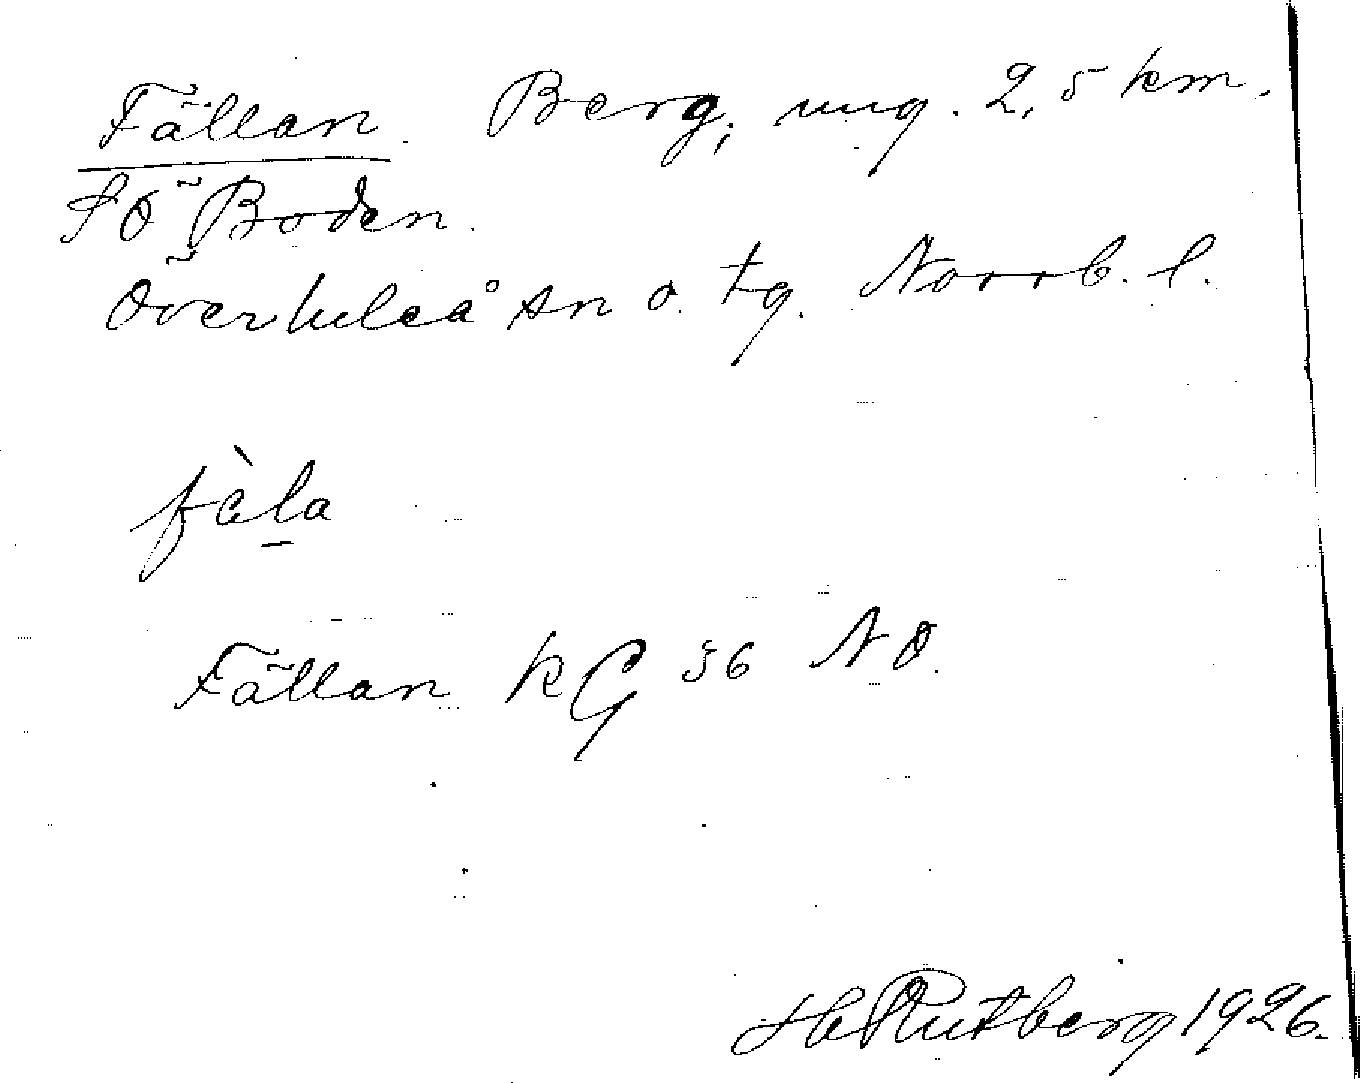 Fällan. Berg, ung. 2,5 km.
SÖ Boden.
Överluleå sn o. tg. Norrb. l.
fàla
Fällan kG 56 NO.
H Rutberg 1926.